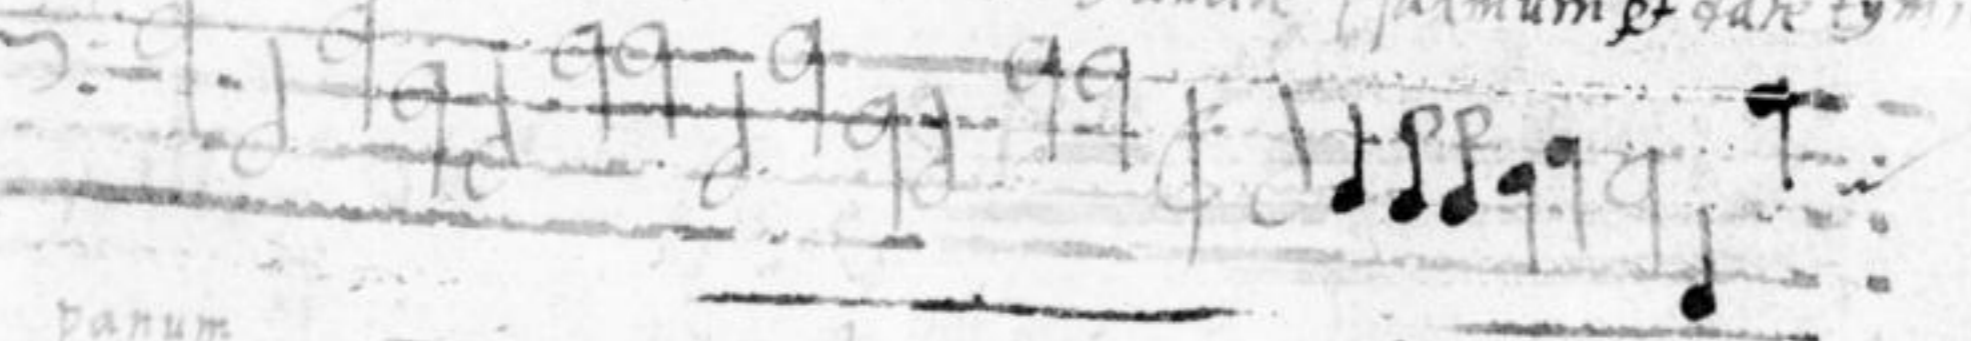 psalmum et date tym
panum